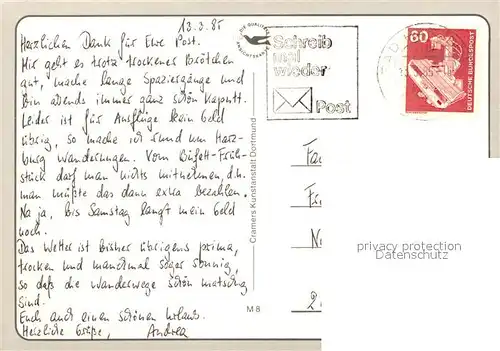 13.3.85
Herzlichen Dank für Eure Post.
Mir geht es trotz trockener Brötchen
gut, mache lange Spaziergänge und
bin abends immer ganz schön kaputt.
Leider ist für Ausflüge kein Geld
übrig, so mache ich rund um Harz-
burg Wanderungen. Vom Büfett-Früh-
stück darf man nichts mitnehmen, d.h.
man müßte das dann extra bezahlen.
Na ja, bis Samstag langt mein Geld
noch.
Das Wetter ist bisher übrigens prima,
trocken und manchmal sogar sonnig,
so daß die Wanderwege schön matschig
sind.
Euch auch einen schönen Urlaub.
Herzliche Grüße, Andrea
Cramers Kunstanstalt Dortmund
M 8
Schreib
mal
wieder
Post
60
DEUTSCHE BUNDESPOST
privacy protection
Datenschutz